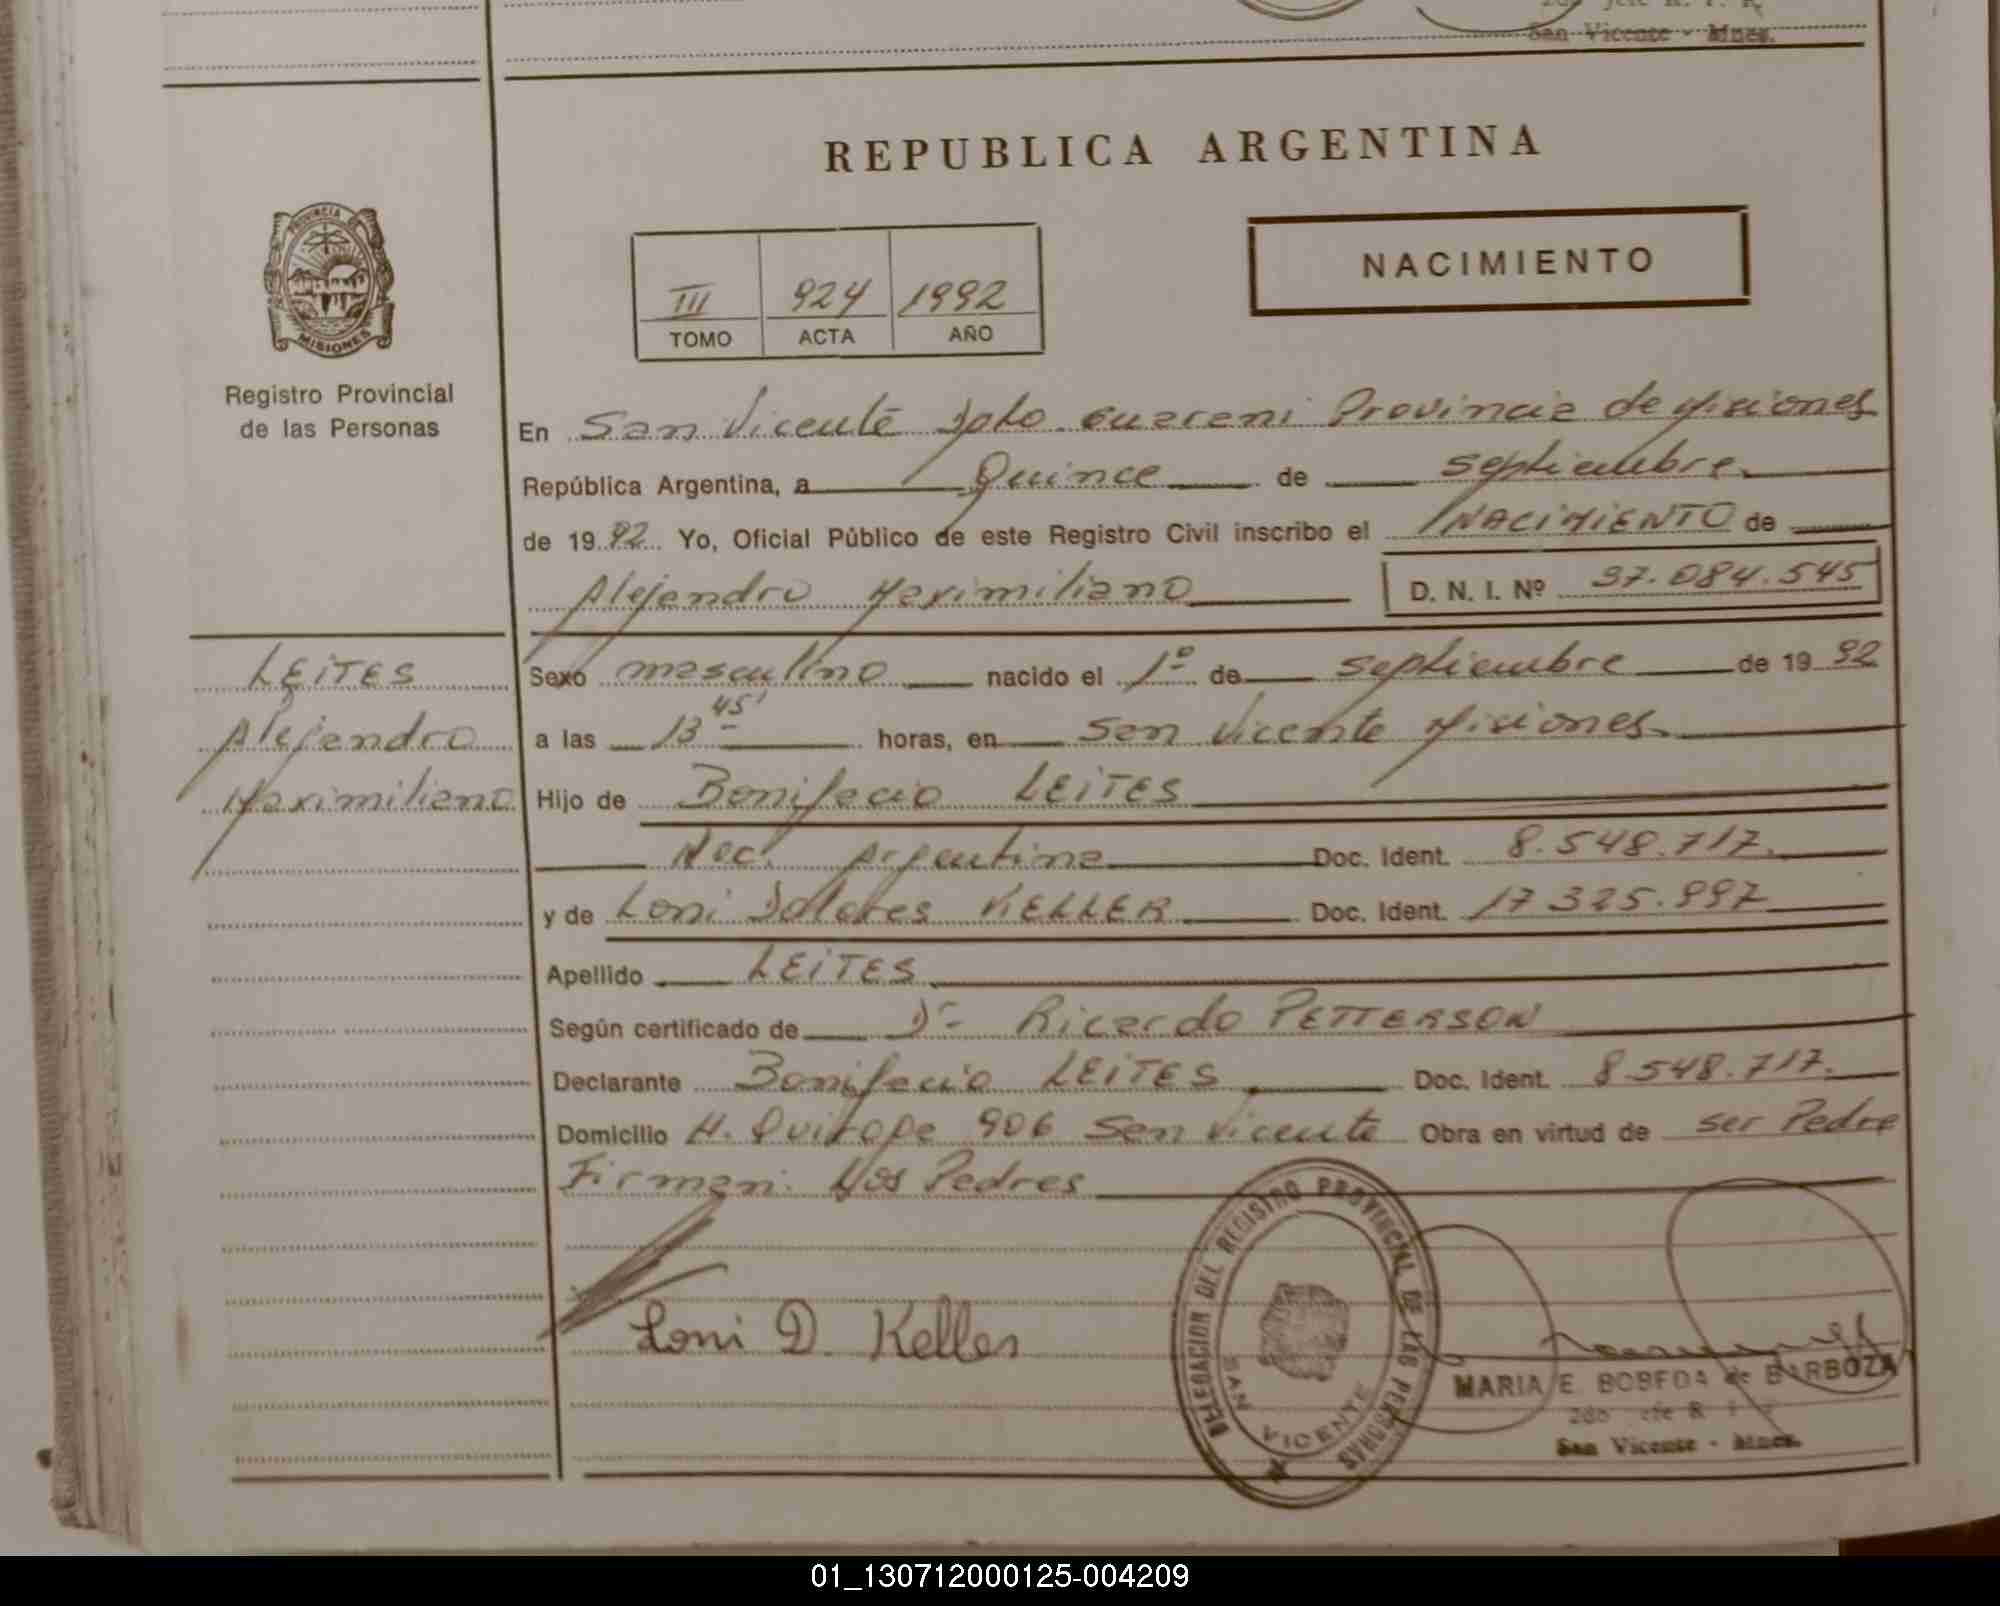 San Vicente - Mnes.
REPUBLICA ARGENTINA
PROVINCIA
MISIONES
NACIMIENTO
III 924 1992
TOMO ACTA AÑO
Registro Provincial
de las Personas
En San Vicente Dpto. Guarani Provincia de Misiones
República Argentina, a Quince de septiembre
de 1992 Yo, Oficial Público de este Registro Civil inscribo el NACIMIENTO de
Alejandro Maximiliano D. N. I. Nº 37.084.545
LEITES
Alejandro
Maximiliano
Sexo masculino nacido el 1º de septiembre de 1992
a las 13 45' horas, en San Vicente Misiones
Hijo de Bonifacio LEITES
Nac. Argentina Doc. Ident. 8.548.717.
y de Loni Dolores KELLER Doc. Ident. 17 325.997
Apellido LEITES
Según certificado de Dr. Ricardo PETTERSON
Declarante Bonifacio LEITES Doc. Ident. 8 548.717.
Domicilio H. Quiroga 906 San Vicente Obra en virtud de ser Padre
Firman: Los Padres
Loni D. Keller
DELEGACION DEL REGISTRO PROVINCIAL DE LAS PERSONAS
SAN VICENTE
MARIA E. BOBEDA de BARBOZA
San Vicente - Mnes.
01_130712000125-004209